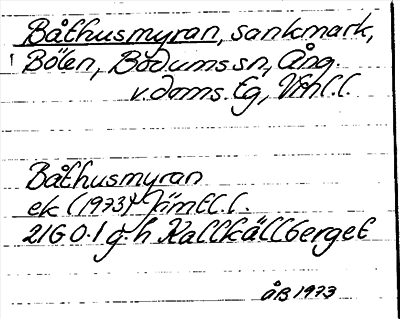 Båthusmyran, sankmark,
Bölen, Bodums sn, Ång.
v.doms. Lg, Vnl.l.
Båthusmyran
ek (1973) Jämtl.l.
21G 0-1 g-h Kallkällberget
ÅB 1973